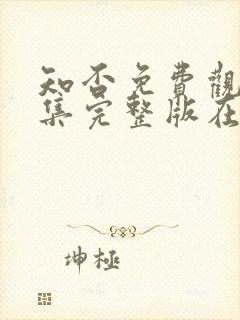 知否免費觀
集完整版在
坤極